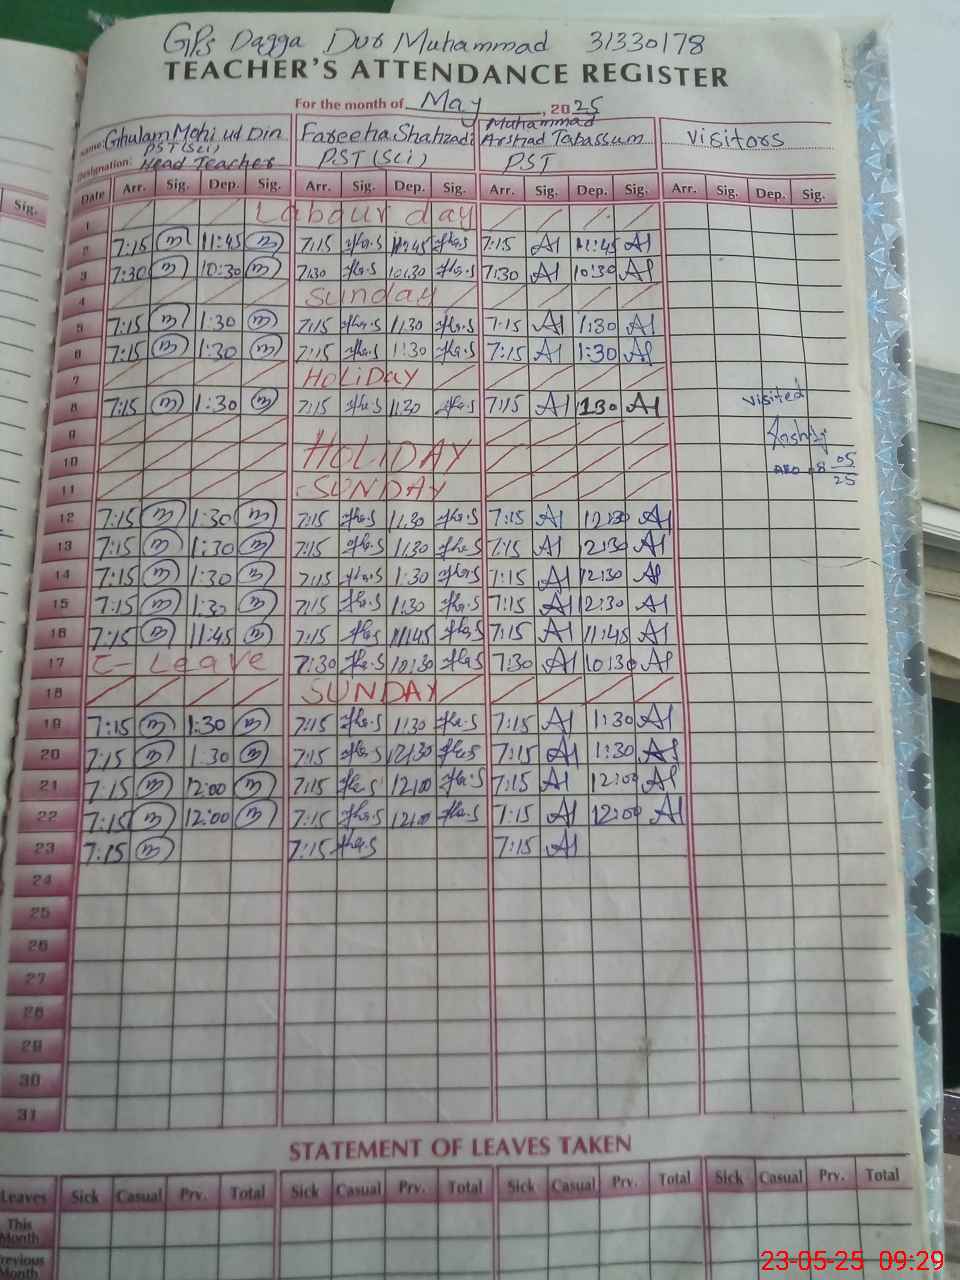 GPS Dagga Dur Muhammad 31330178
TEACHER'S ATTENDANCE REGISTER
For the month of May, 2025
Name: Ghulam Mohi ud Din Fareeha Shahzadi Muhammad Arshad Tabassum Visitors
Designation: PST (Sci) Head Teacher PST (Sci) PST
Sig. Date Arr. Sig. Dep. Sig. Arr. Sig. Dep. Sig. Arr. Sig. Dep. Sig. Arr. Sig. Dep. Sig.
1 Labour day
2 7:15 11:45 7:15 11:45 7:15 11:45
3 7:30 10:30 7:30 10:30 7:30 10:30
4 Sunday
5 7:15 1:30 7:15 1:30 7:15 1:30
6 7:15 1:30 7:15 1:30 7:15 1:30
7 HOLIDAY
8 7:15 1:30 7:15 1:30 7:15 1:30 visited
9
10 HOLIDAY
11 SUNDAY
12 7:15 1:30 7:15 1:30 7:15 12:30
13 7:15 1:30 7:15 1:30 7:15 12:30
14 7:15 1:30 7:15 1:30 7:15 12:30
15 7:15 1:30 7:15 1:30 7:15 12:30
16 7:15 11:45 7:15 11:45 7:15 11:45
17 C- Leave 7:30 10:30 7:30 10:30
18 SUNDAY
19 7:15 1:30 7:15 1:30 7:15 1:30
20 7:15 1:30 7:15 7:15 1:30
21 7:15 12:00 7:15 12:00 7:15 12:00
22 7:15 12:00 7:15 12:00 7:15 12:00
23 7:15 7:15 7:15
24
25
26
27
28
29
30
31
STATEMENT OF LEAVES TAKEN
Leaves Sick Casual Prv. Total Sick Casual Prv. Total Sick Casual Prv. Total Sick Casual Prv. Total
This Month
Previous Month
23-05-25 09:29